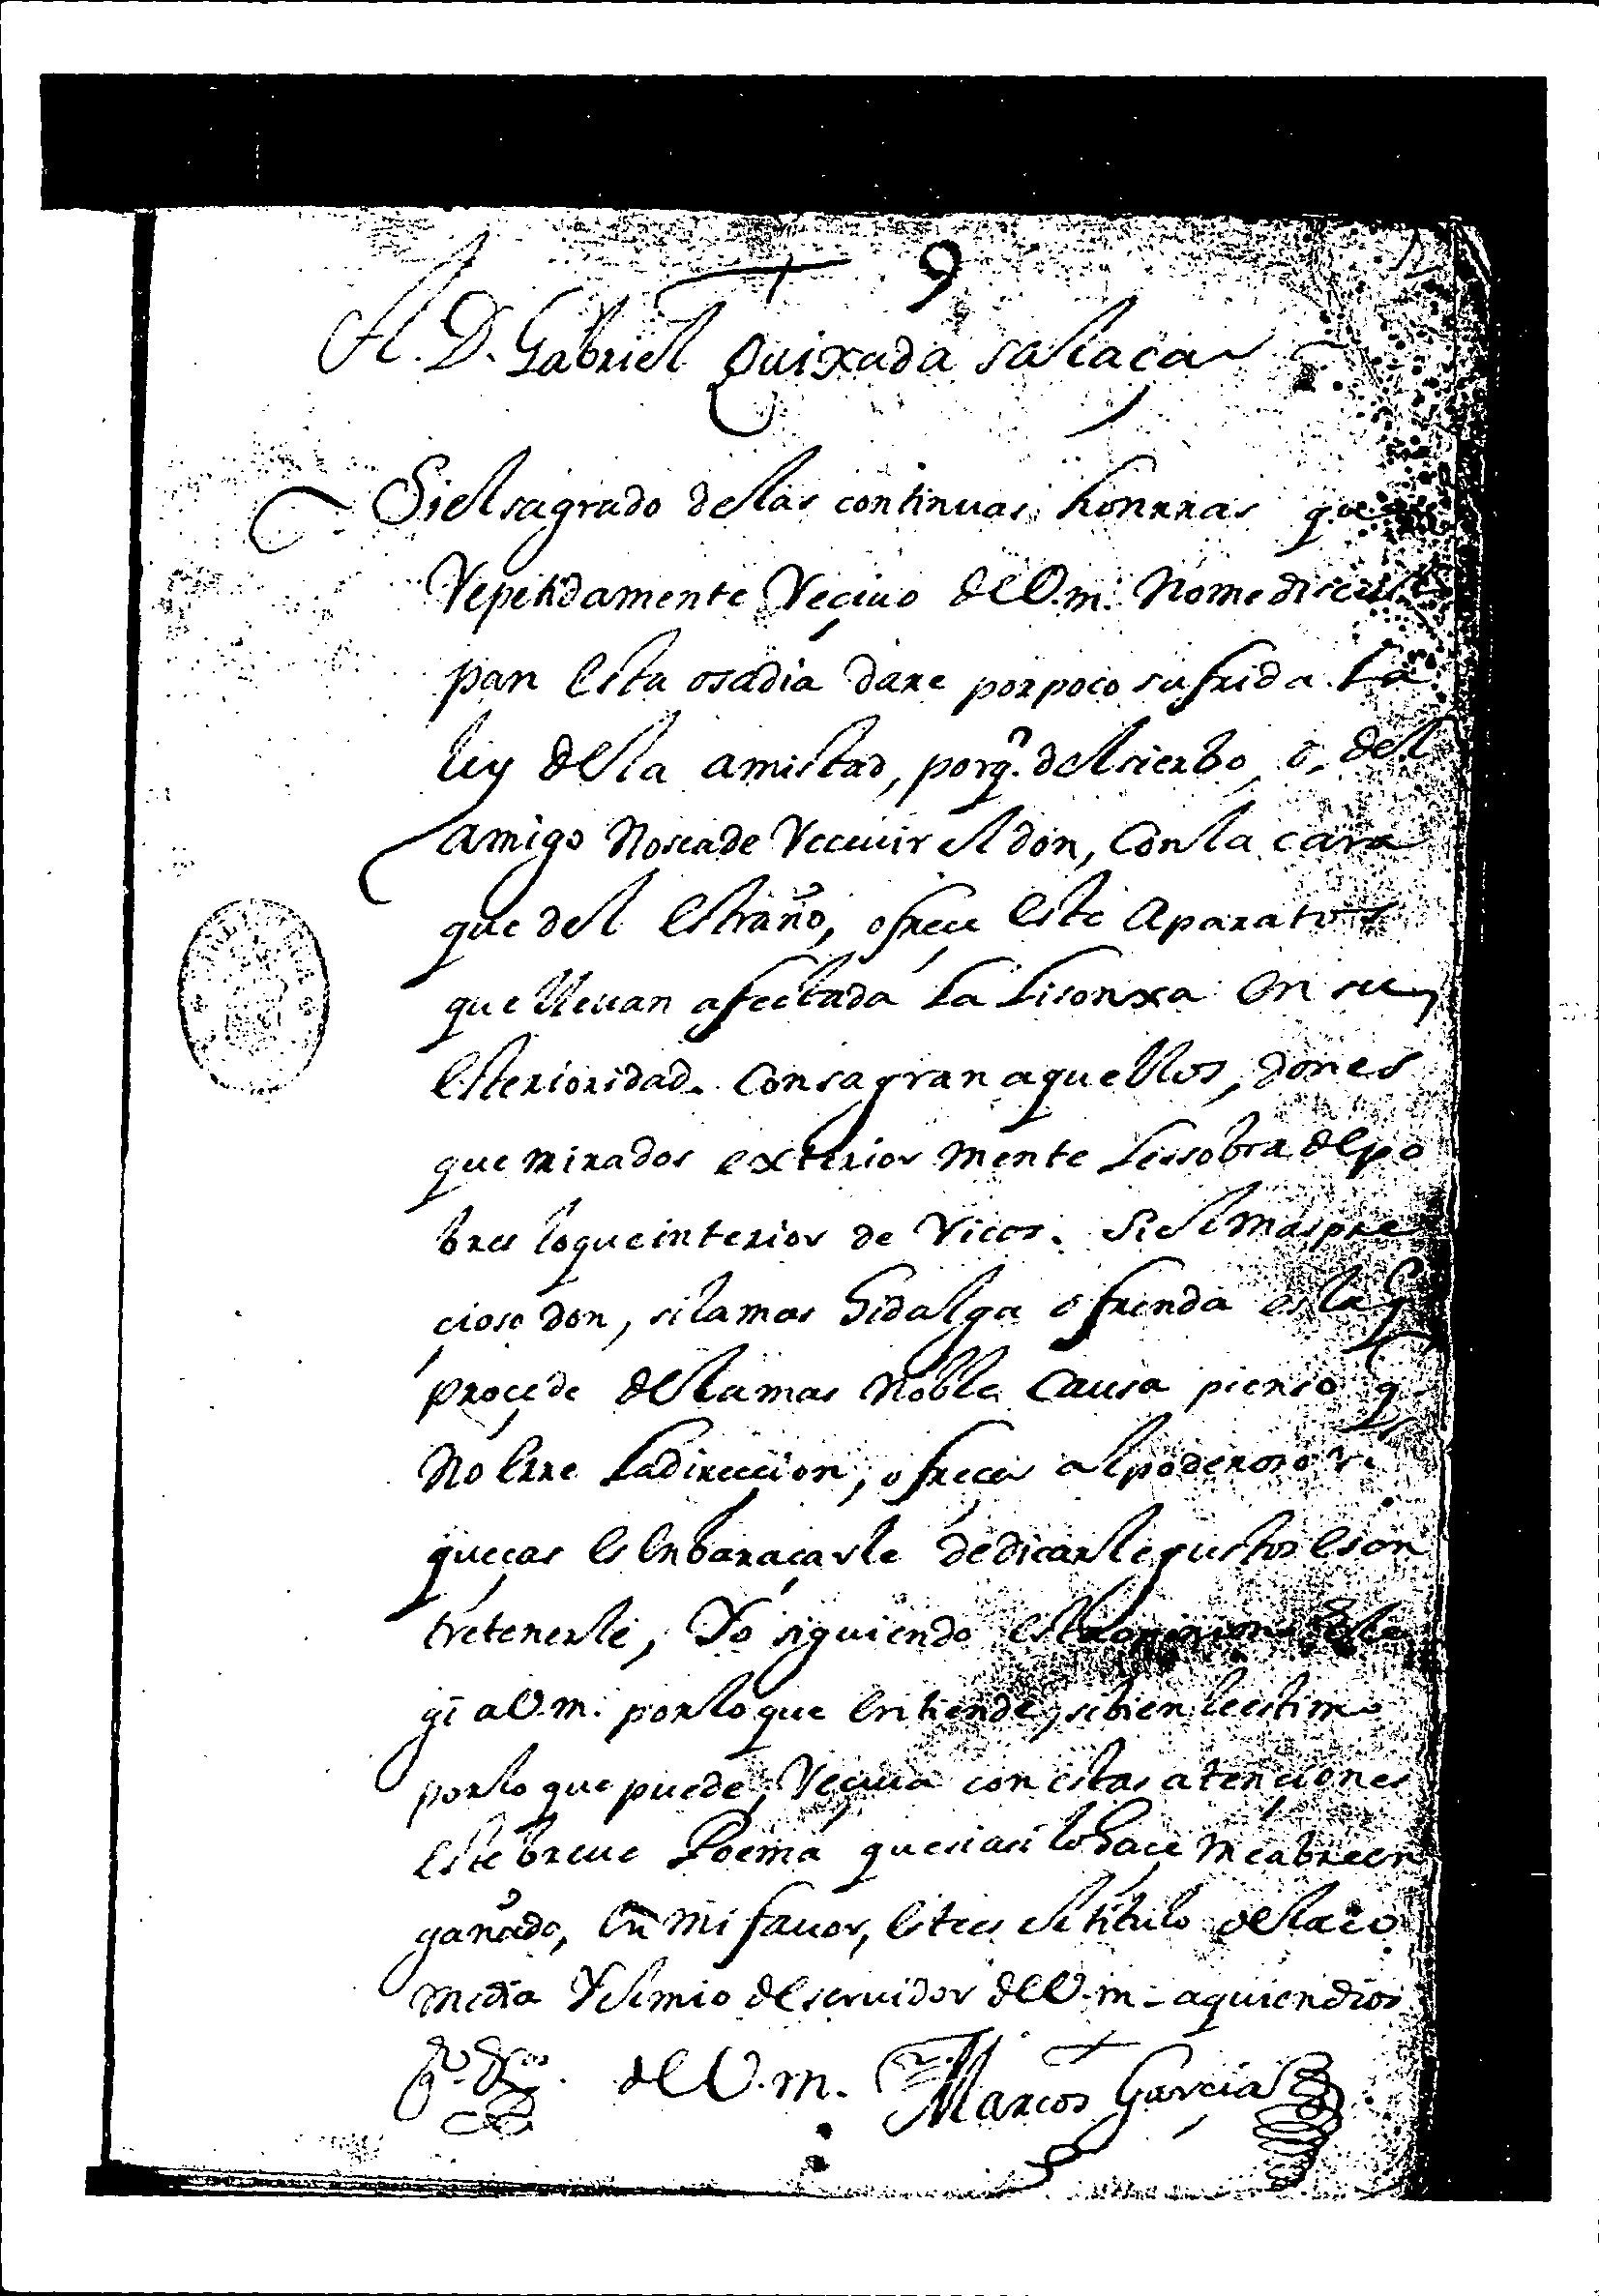 9
A. D. Gabriel Quixada salaçar
Si el sagrado de las continuas honrras que
Repetidamente Reçiuo de V.m. No me discul
pan esta osadia dare por poco sufrida la
ley de la amistad, porq. del sierbo, o, del
amigo No se a de Reçeuir el don, Con la cara
que del estraño, ofreçe este Aparato
que lleuan afectada la lisonxa en su
esterioridad. Consagran aquellos, dones
que mirados exteriormente les sobra de po
bres lo que interior de Ricos. Si el mas pre
cioso don, si la mas hidalga ofrenda es la q
proçede de la mas Noble Causa pienso q.
No erre la direcçion, ofreçer al poderoso ri
queças es enbaraçarle dedicarle gustos es en
tretenerle, Yo siguiendo esta opinion ele
gi a V.m. por lo que entiende, si bien le estimo
por lo que puede, Reçiua con estas atençiones
este breue Poema que si asi lo haçe me abre en
gañado, en mi fauor, este es el titulo de la co
media Y el mio de seruidor de V.m. a quien dios
de V.m. Marcos Garcia